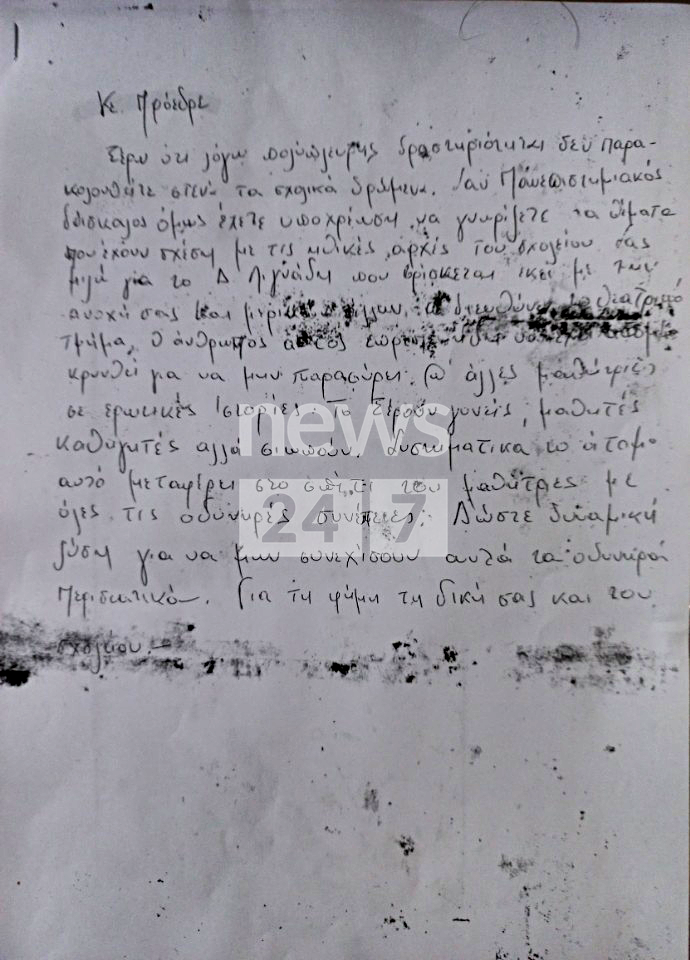 Κε Πρόεδρε
Ξέρω ότι λόγω πολύπλευρης δραστηριότητας δεν παρα-
κολουθείτε στενά τα σχολικά δρώμενα. Σαν Πανεπιστημιακός
δάσκαλος όμως έχετε υποχρέωση να γνωρίζετε τα θέματα
που έχουν σχέση με τις ηθικές αρχές του σχολείου. Σας
μιλώ για το Δ Λιγνάδη που βρίσκεται εκεί με την
ανοχή σας και μερικών άλλων, να διευθύνει το θεατρικό
τμήμα. Ο άνθρωπος αυτός
κρυνθεί για να μην παρασύρει άλλες μαθήτριες
σε ερωτικές ιστορίες. Το ξέρουν γονείς, μαθητές
καθηγητές αλλά σιωπούν. Συστηματικά το άτομο
αυτό μεταφέρει στο σπίτι του μαθήτριες με
όλες τις οδυνηρές συνέπειες. Δώστε δυναμική
λύση για να μην συνεχίσουν αυτά τα οδυνηρά
περιστατικά. Για τη φήμη τη δική σας και του
σχολείου.-
news
24 7